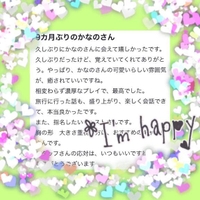 9カ月ぶりのかなのさん
久しぶりにかなのさんに会えて嬉しかったです。
久しぶりだったけど、覚えていてくれてありがと
う。やっぱり、かなのさんの可愛いらしい雰囲気
が、癒されていいですね。
相変わらず濃厚なプレイで、最高でした。
旅行に行った話も、盛り上がり、楽しく会話でき
て、本当良かったです。
また、指名したい
I'm happy
胸の形 大きさ
の応対は、いつもいいです
とうございます